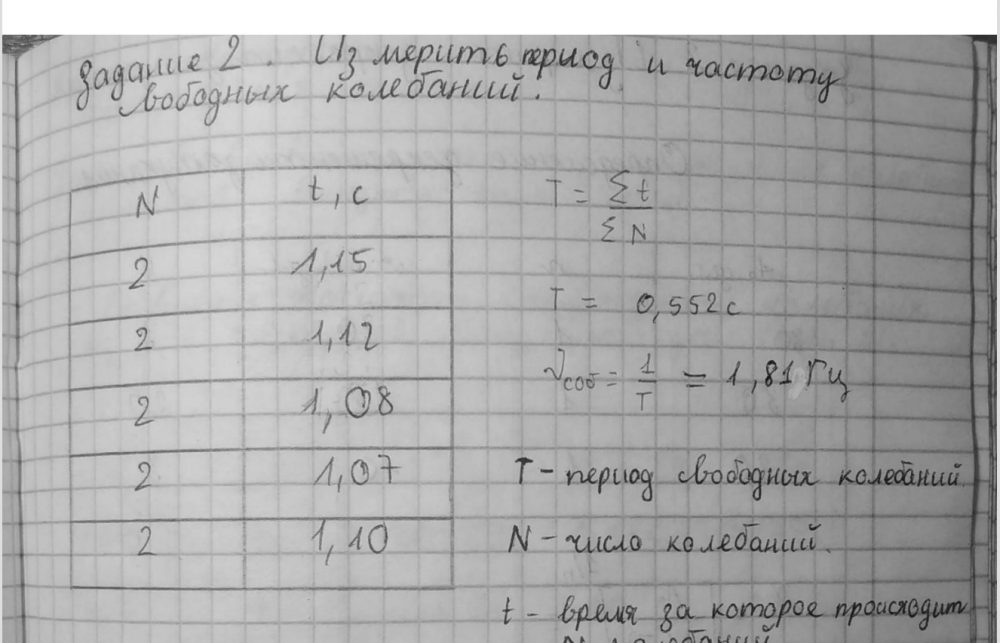 Задание 2. Измерить период и частоту
свободных колебаний.
N t, c
2 1,15
2 1,12
2 1,08
2 1,07
2 1,10
T = Σt / ΣN
T = 0,552 с
νсоб = 1/T = 1,81 Гц
T - период свободных колебаний
N - число колебаний.
t - время за которое происходит
N колебаний